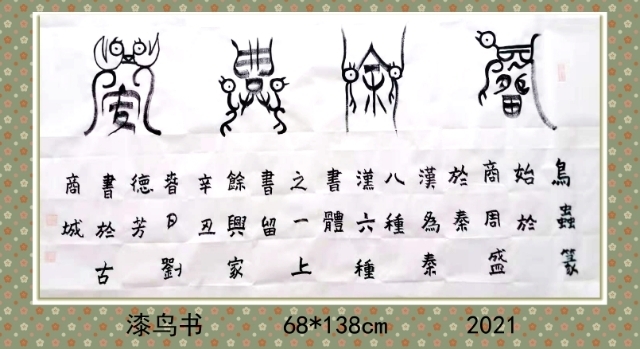 鳥蟲篆
始於
商周盛
於秦
漢為秦
八種
漢六種
書體
之一上
書留
餘興家
辛丑
春日劉
德芳
書於古
商城
漆鸟书 68*138cm 2021